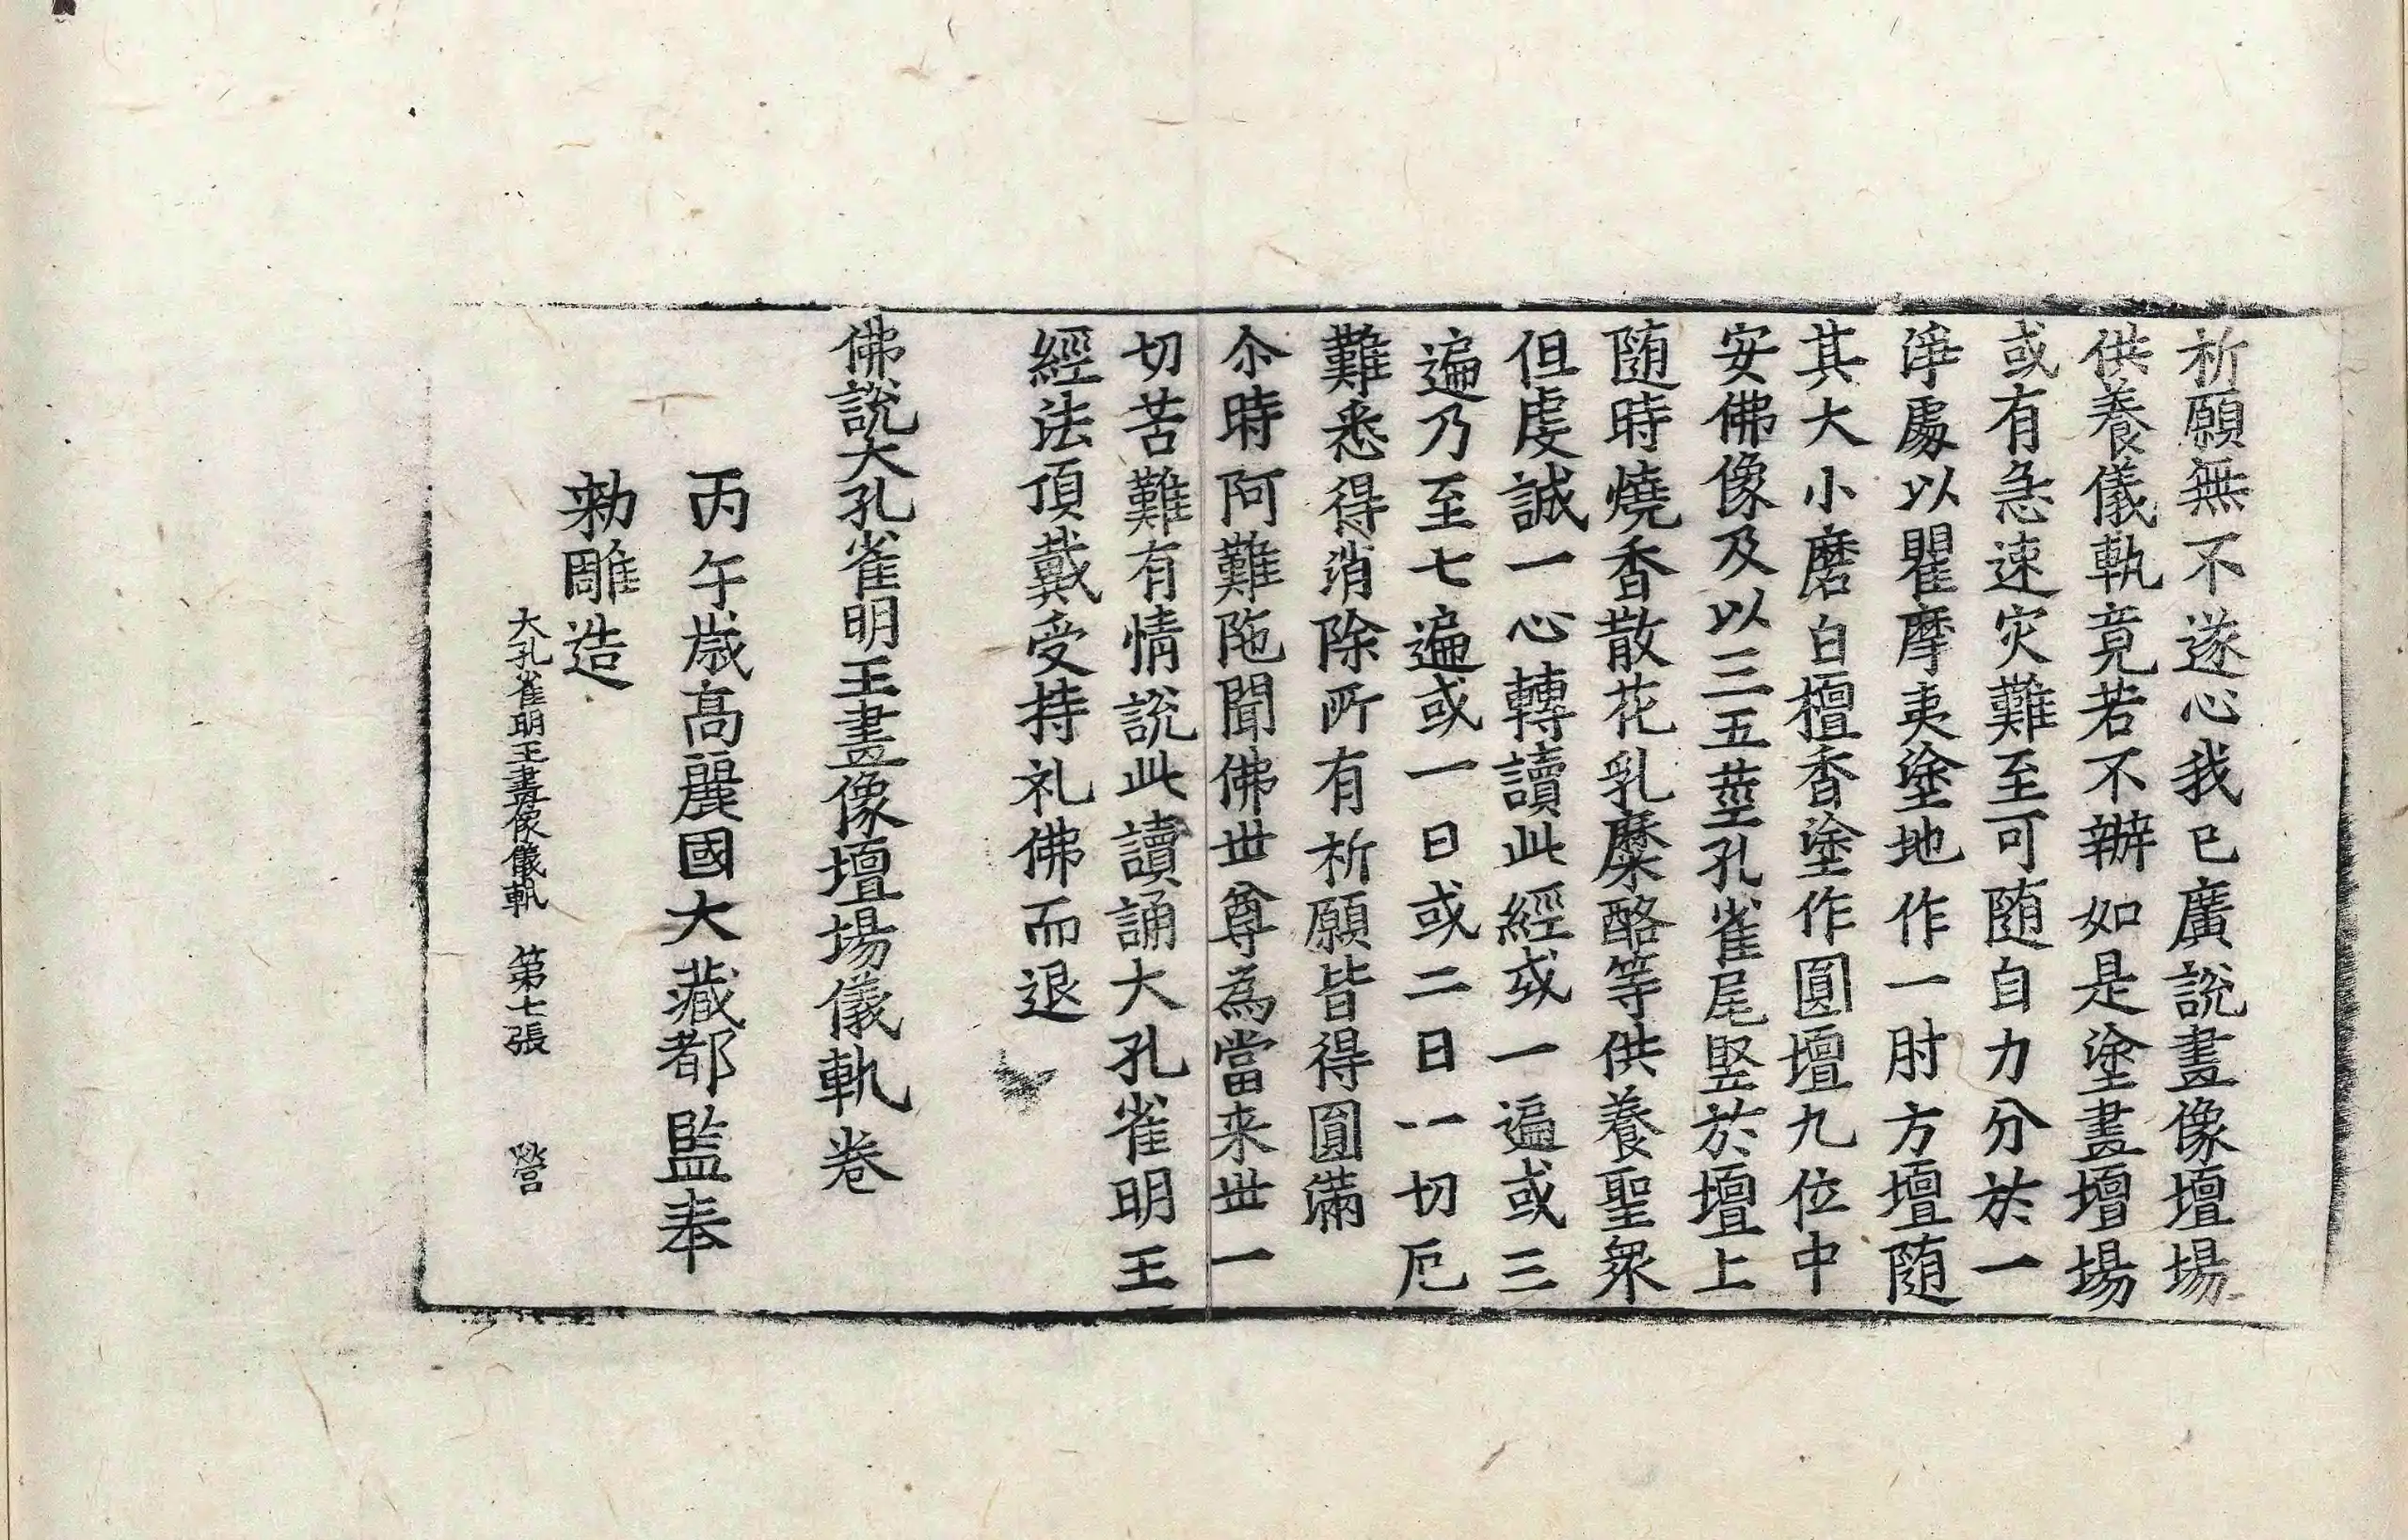 祈願無不遂心我已廣說畫像壇場
供養儀軌竟若不辦如是塗畫壇場
或有急速灾難至可随自力分於一
淨處以瞿摩夷塗地作一肘方壇随
其大小磨白檀香塗作圓壇九位中
安佛像及以三五莖孔雀尾竪於壇上
随時燒香散花乳糜酪等供養聖衆
但虔誠一心轉讀此經或一遍或三
遍乃至七遍或一日或二日一切厄
難悉得消除所有祈願皆得圓滿
尒時阿難陁聞佛世尊為當来世一
切苦難有情說此讀誦大孔雀明王
經法頂戴受持礼佛而退
佛說大孔雀明王畫像壇場儀軌卷
丙午歳高麗國大藏都監奉
勑雕造
大孔雀明王畫像儀軌 第七張